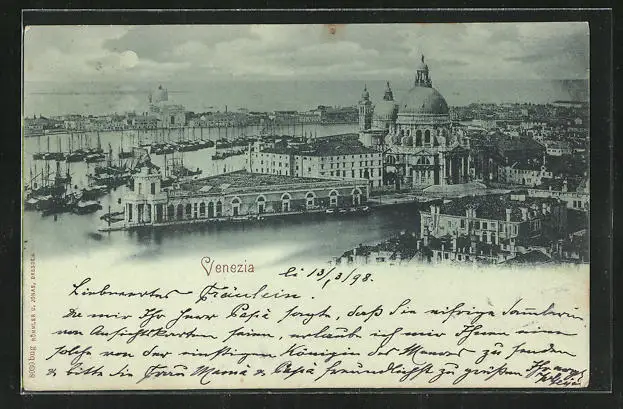 Venezia
li 13/3 98.
Liebwertes Fräulein.
da mir Ihr Herr Papa sagte, daß Sie eifrige Sammlerin
von Ansichtskarten seien, erlaube ich mir Ihnen eine
solche von der einstigen Königin des Meeres zu senden
& bitte Sie Frau Mama & Papa freundlichst zu grüßen Ihr
8030 bug RÖMMLER U. JONAS, DRESDEN